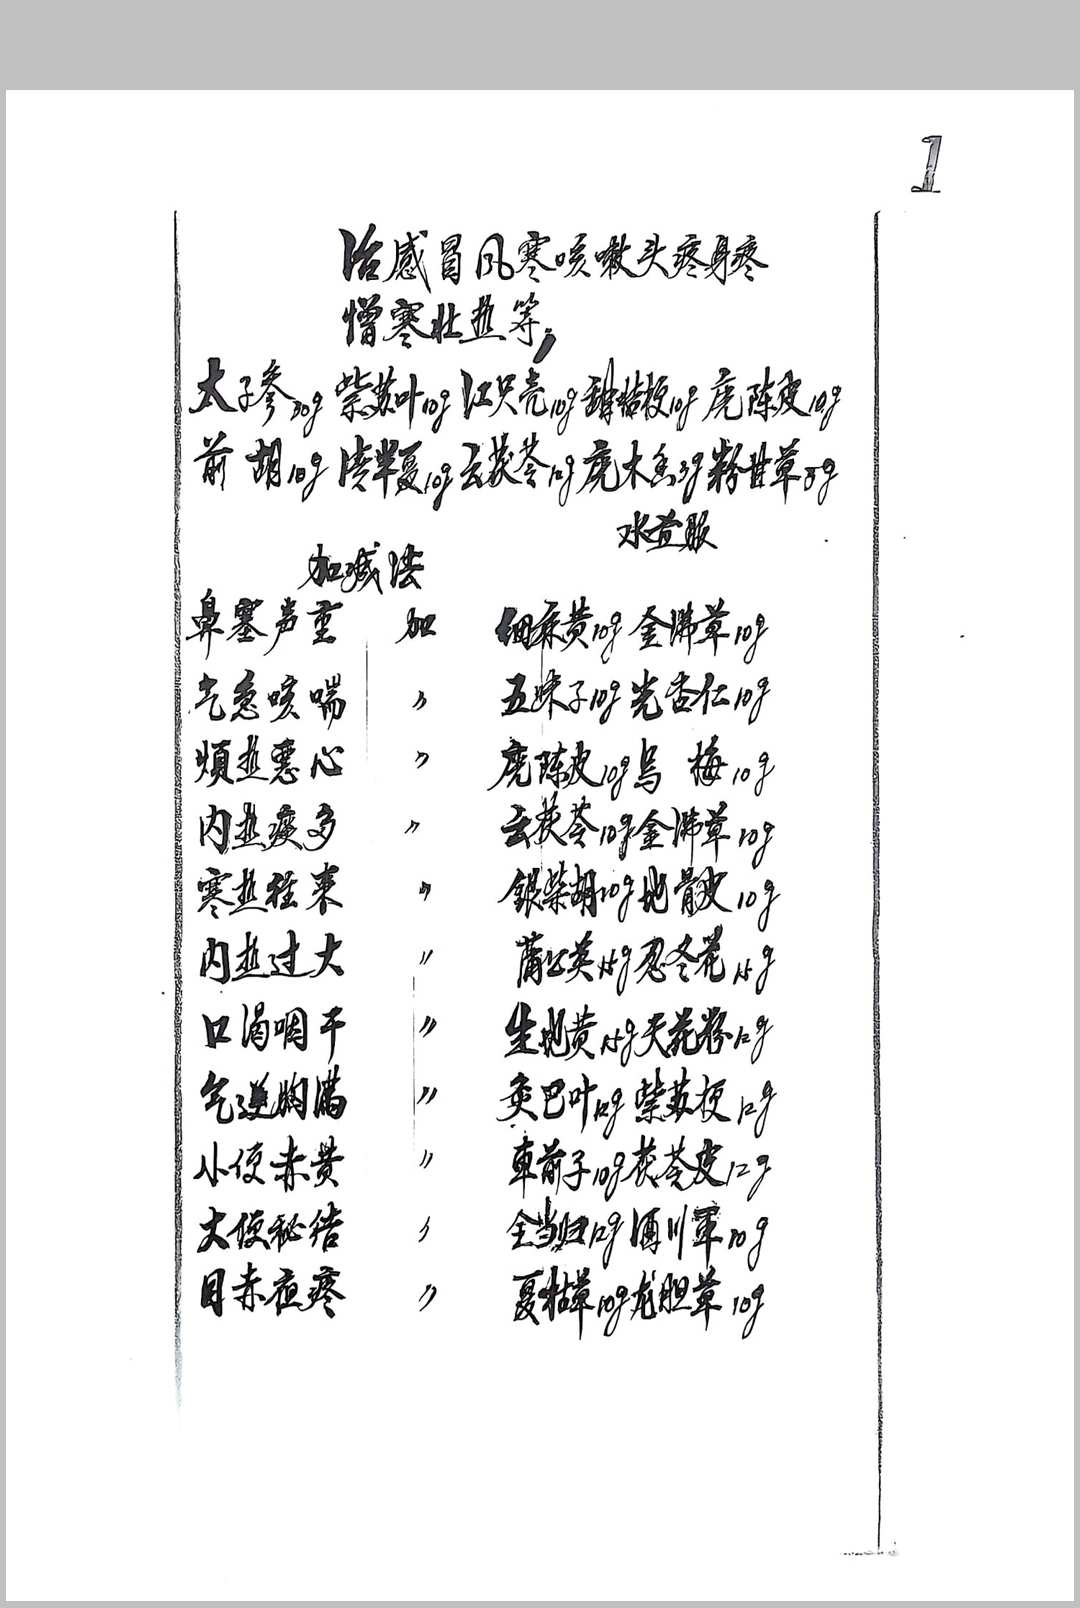 1
治感冒风寒咳嗽头疼身疼
憎寒壮热等,
太子参30g 紫苏叶10g 江只壳10g 甜桔梗10g 广陈皮10g
前胡10g 清半夏10g 云茯苓12g 广木香3g 粉甘草8g
水煎服
加减法
鼻塞声重 加 细麻黄10g 金沸草10g
气急咳喘 〃 五味子10g 光杏仁10g
烦热恶心 〃 广陈皮10g 乌梅10g
内热痰多 〃 云茯苓10g 金沸草10g
寒热往来 〃 银柴胡10g 地骨皮10g
内热过大 〃 蒲公英15g 忍冬花15g
口渴咽干 〃 生地黄15g 天花粉12g
气逆胸满 〃 炙巴叶12g 紫苏梗12g
小便赤黄 〃 車前子10g 茯苓皮12g
大便秘结 〃 全当归12g 酒川軍10g
目赤夜疼 〃 夏枯草10g 龙胆草10g